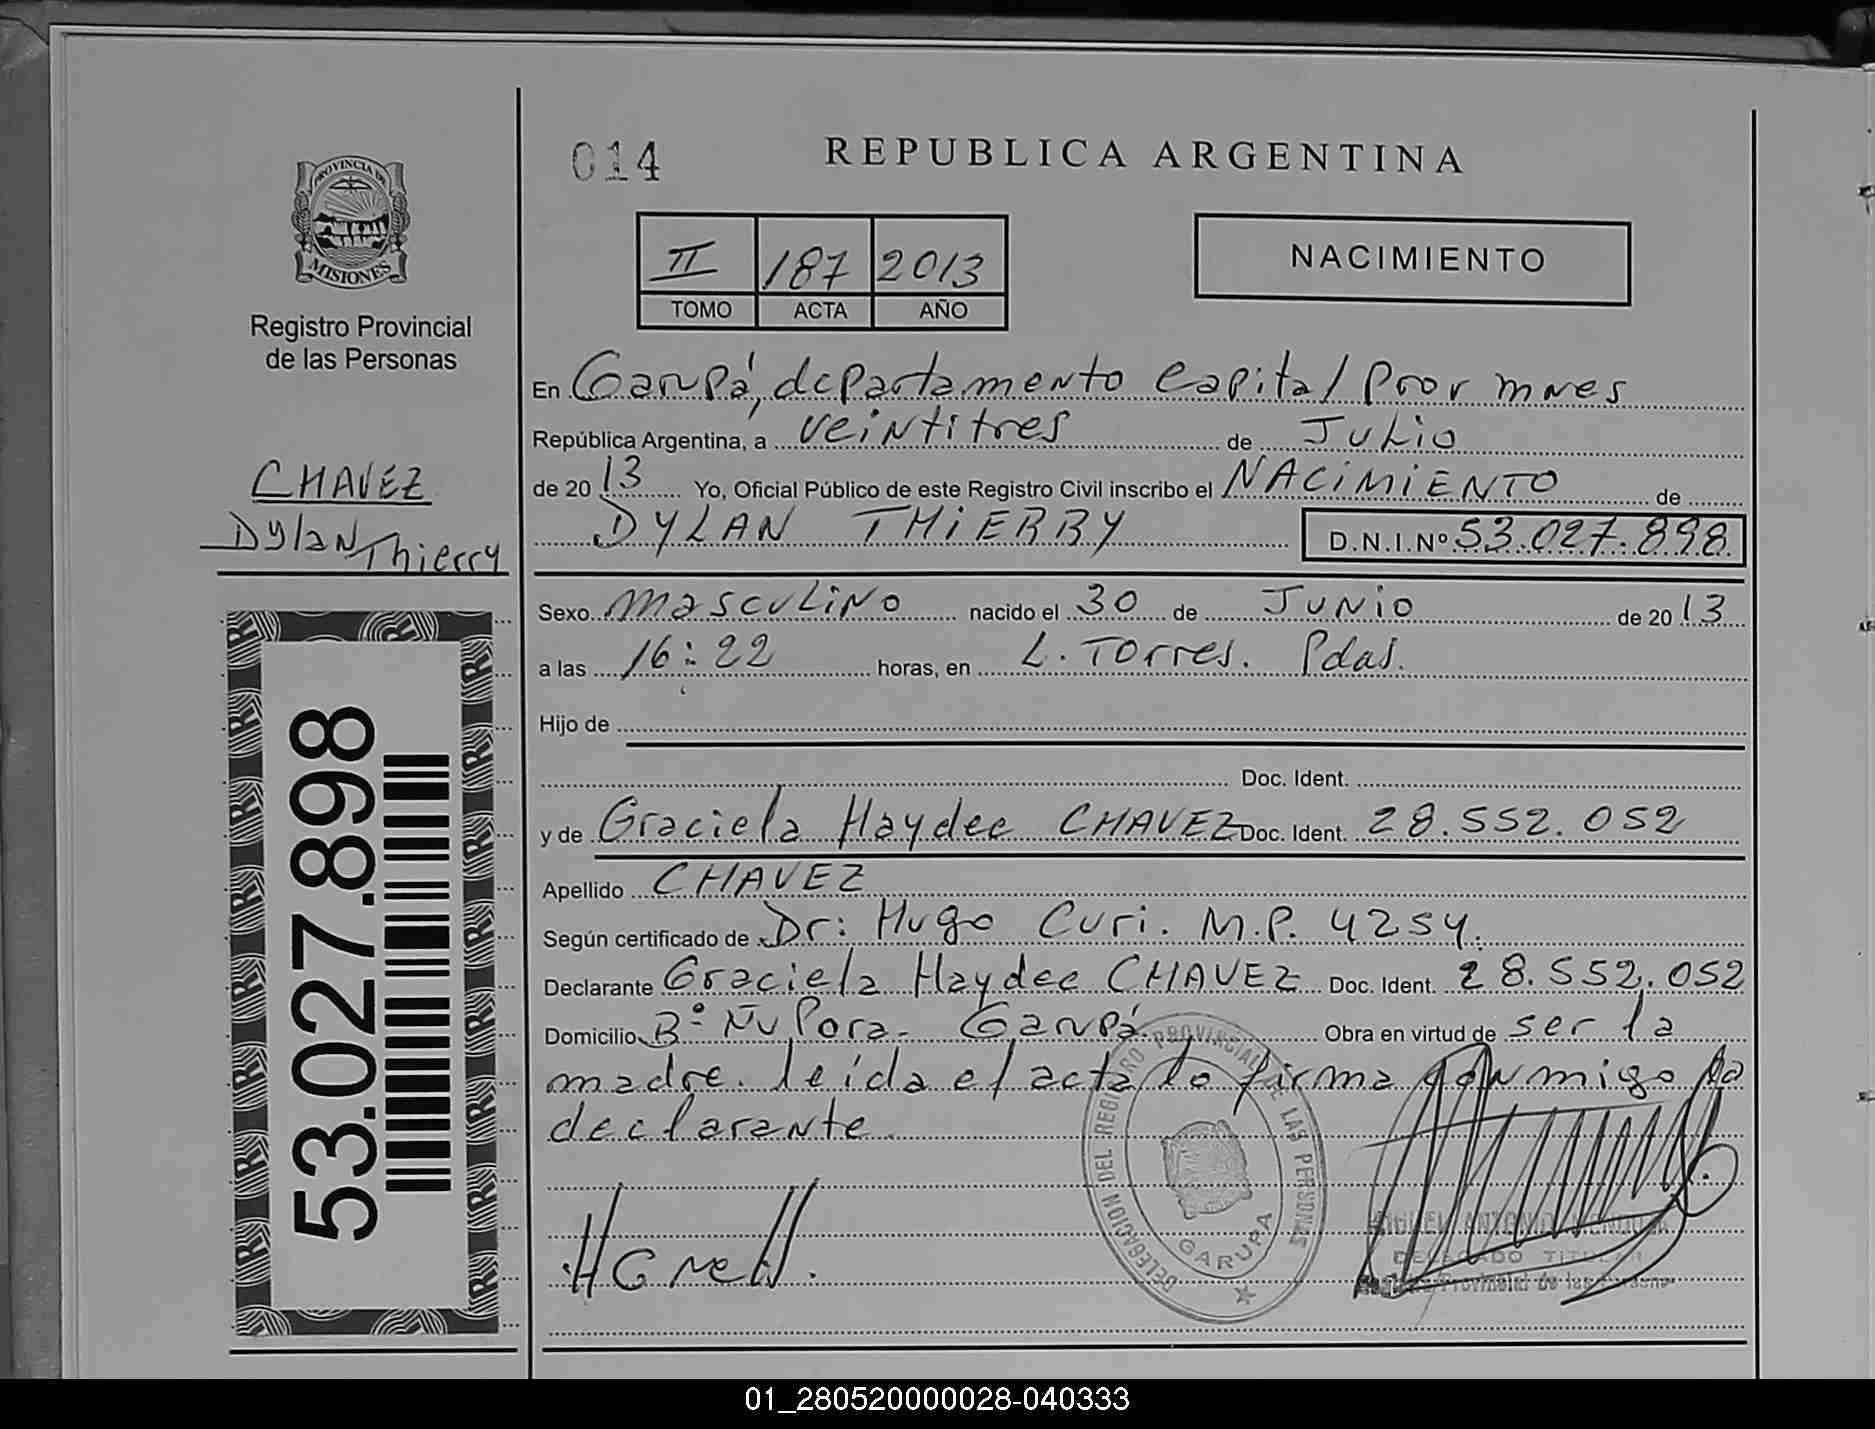 014
REPUBLICA ARGENTINA
PROVINCIA DE
MISIONES
II 187 2013
TOMO ACTA AÑO
NACIMIENTO
Registro Provincial
de las Personas
En Garupá, departamento Capital Prov mnes
República Argentina, a veintitres de Julio
de 20 13 Yo, Oficial Público de este Registro Civil inscribo el NACiMiENTO de
DYLAN THiERRY D.N.I.Nº 53.027.898
CHAVEZ
Dylan Thierry
Sexo masculino nacido el 30 de Junio de 20 13
a las 16:22 horas, en L. Torres. Pdas.
Hijo de
Doc. Ident.
y de Graciela Haydee CHAVEZ Doc. Ident. 28.552.052
Apellido CHAVEZ
Según certificado de Dr: Hugo Curi. M.P. 4254.
Declarante Graciela Haydee CHAVEZ Doc. Ident. 28.552.052
Domicilio Bº Ñu Pora. Garupá. Obra en virtud de ser la
madre. leída el acta lo firma conmigo la
declarante.
53.027.898
DELEGACION DEL REGISTRO PROVINCIAL DE LAS PERSONAS
GARUPA
MIGUEL ANTONIO
DELEGADO TITULAR
Registro Provincial de las Personas
01_280520000028-040333